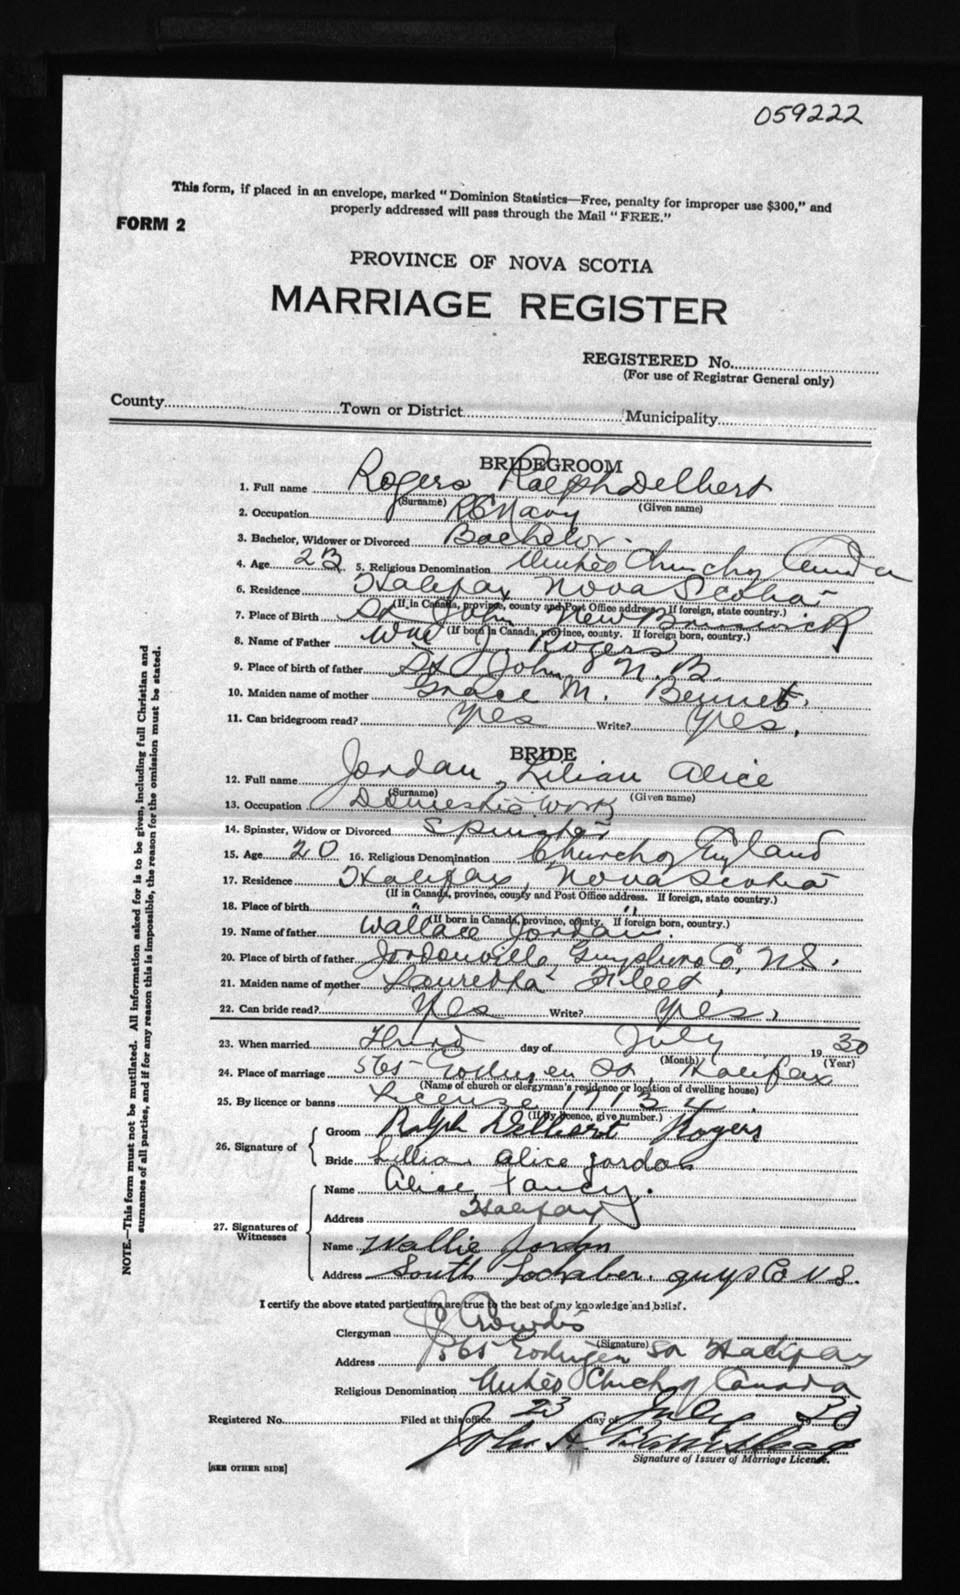 059222
This form, if placed in an envelope, marked "Dominion Statistics—Free, penalty for improper use $300," and
properly addressed will pass through the Mail "FREE."
FORM 2
PROVINCE OF NOVA SCOTIA
MARRIAGE REGISTER
REGISTERED No.
(For use of Registrar General only)
County Town or District Municipality
BRIDEGROOM
1. Full name Rogers Ralph Delbert
(Surname) (Given name)
2. Occupation R C Navy
3. Bachelor, Widower or Divorced Bachelor.
4. Age 23 5. Religious Denomination United Church of Canada
6. Residence Halifax Nova Scotia
(If in Canada, province, county and Post Office address. If foreign, state country.)
7. Place of Birth St John New Brunswick
(If born in Canada, province, county. If foreign born, country.)
8. Name of Father Wm J Rogers
9. Place of birth of father St John N.B.
10. Maiden name of mother Grace M. Bennet.
11. Can bridegroom read? Yes Write? Yes,
BRIDE
12. Full name Jordan, Lilian Alice
(Surname) (Given name)
13. Occupation Domestic Work
14. Spinster, Widow or Divorced Spinster
15. Age 20 16. Religious Denomination Church of England
17. Residence Halifax, Nova Scotia
(If in Canada, province, county and Post Office address. If foreign, state country.)
18. Place of birth " "
(If born in Canada, province, county. If foreign born, country.)
19. Name of father Wallace Jordan.
20. Place of birth of father Jordanville Guysboro Co, N.S.
21. Maiden name of mother Lauretta
22. Can bride read? Yes Write? Yes,
23. When married Third day of July 1930
(Month) (Year)
24. Place of marriage 565 Gottingen St, Halifax
(Name of church or clergyman's residence or location of dwelling house)
25. By licence or banns License
(If by licence, give number.)
26. Signature of
Groom Ralph Delbert Rogers
Bride Lillian Alice Jordan
27. Signatures of Witnesses
Name Alice Fancy.
Address Halifax
Name Wallie Jordan
Address South Lochaber. guys Co N S.
I certify the above stated particulars are true to the best of my knowledge and belief.
Clergyman
(Signature)
Address 565 Gottingen St Halifax
Religious Denomination United Church of Canada
Registered No. Filed at this office 23 day of July 30
John H
Signature of Issuer of Marriage License.
[SEE OTHER SIDE]
NOTE.—This form must not be mutilated. All information asked for is to be given, including full Christian and
surnames of all parties, and if for any reason this is impossible, the reason for the omission must be stated.